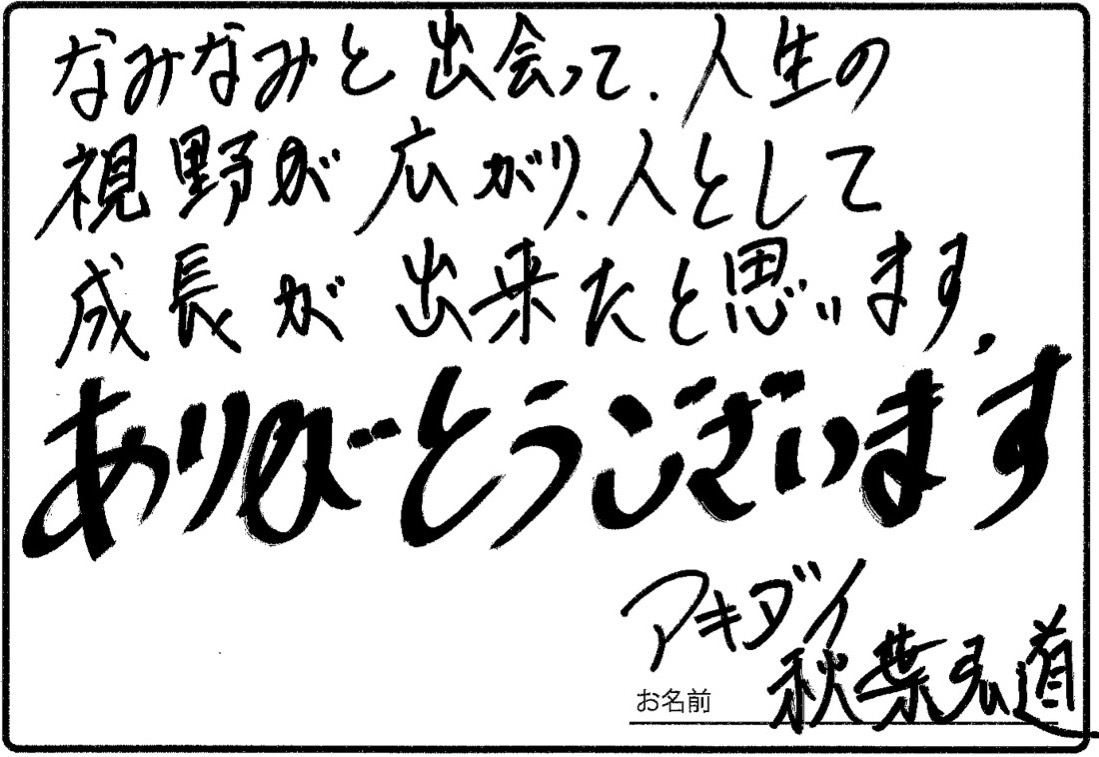 なみなみと出会って、人生の
視野が広がり、人として
成長が出来たと思います。
ありがとうございます
アキダイ
お名前 秋葉弘道